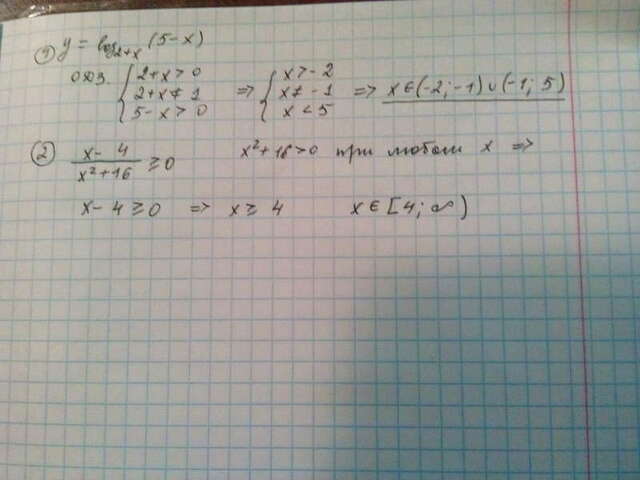 ① y = log₂₊ₓ (5-x)
ОДЗ. { 2+x > 0 => { x > -2 => x ∈ (-2; -1) ∪ (-1; 5)
2+x ≠ 1 x ≠ -1
5-x > 0 x < 5
② (x-4)/(x²+16) ≥ 0 x²+16 > 0 при любом x =>
x-4 ≥ 0 => x ≥ 4 x ∈ [4; ∞)